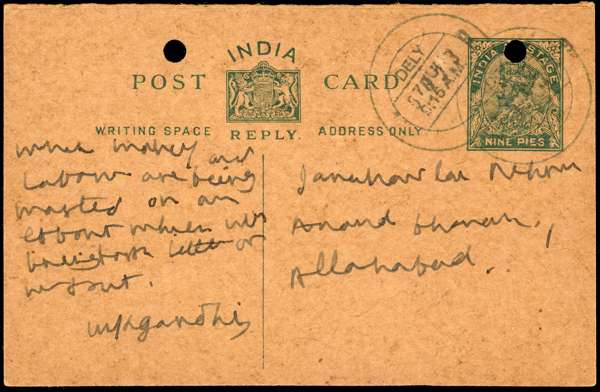 INDIA
POST CARD
WRITING SPACE REPLY. ADDRESS ONLY
INDIA POSTAGE
NINE PIES
DELY
6.15 A.M
when money and
labour are being
wasted on an
effort which will
better or
worst.
mkgandhi
Jawaharlal Nehru
Anand Bhavan,
Allahabad.